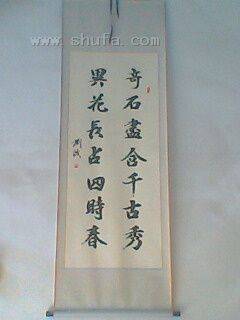 www.shufa.com
奇石盡含千古秀
異花長占四時春